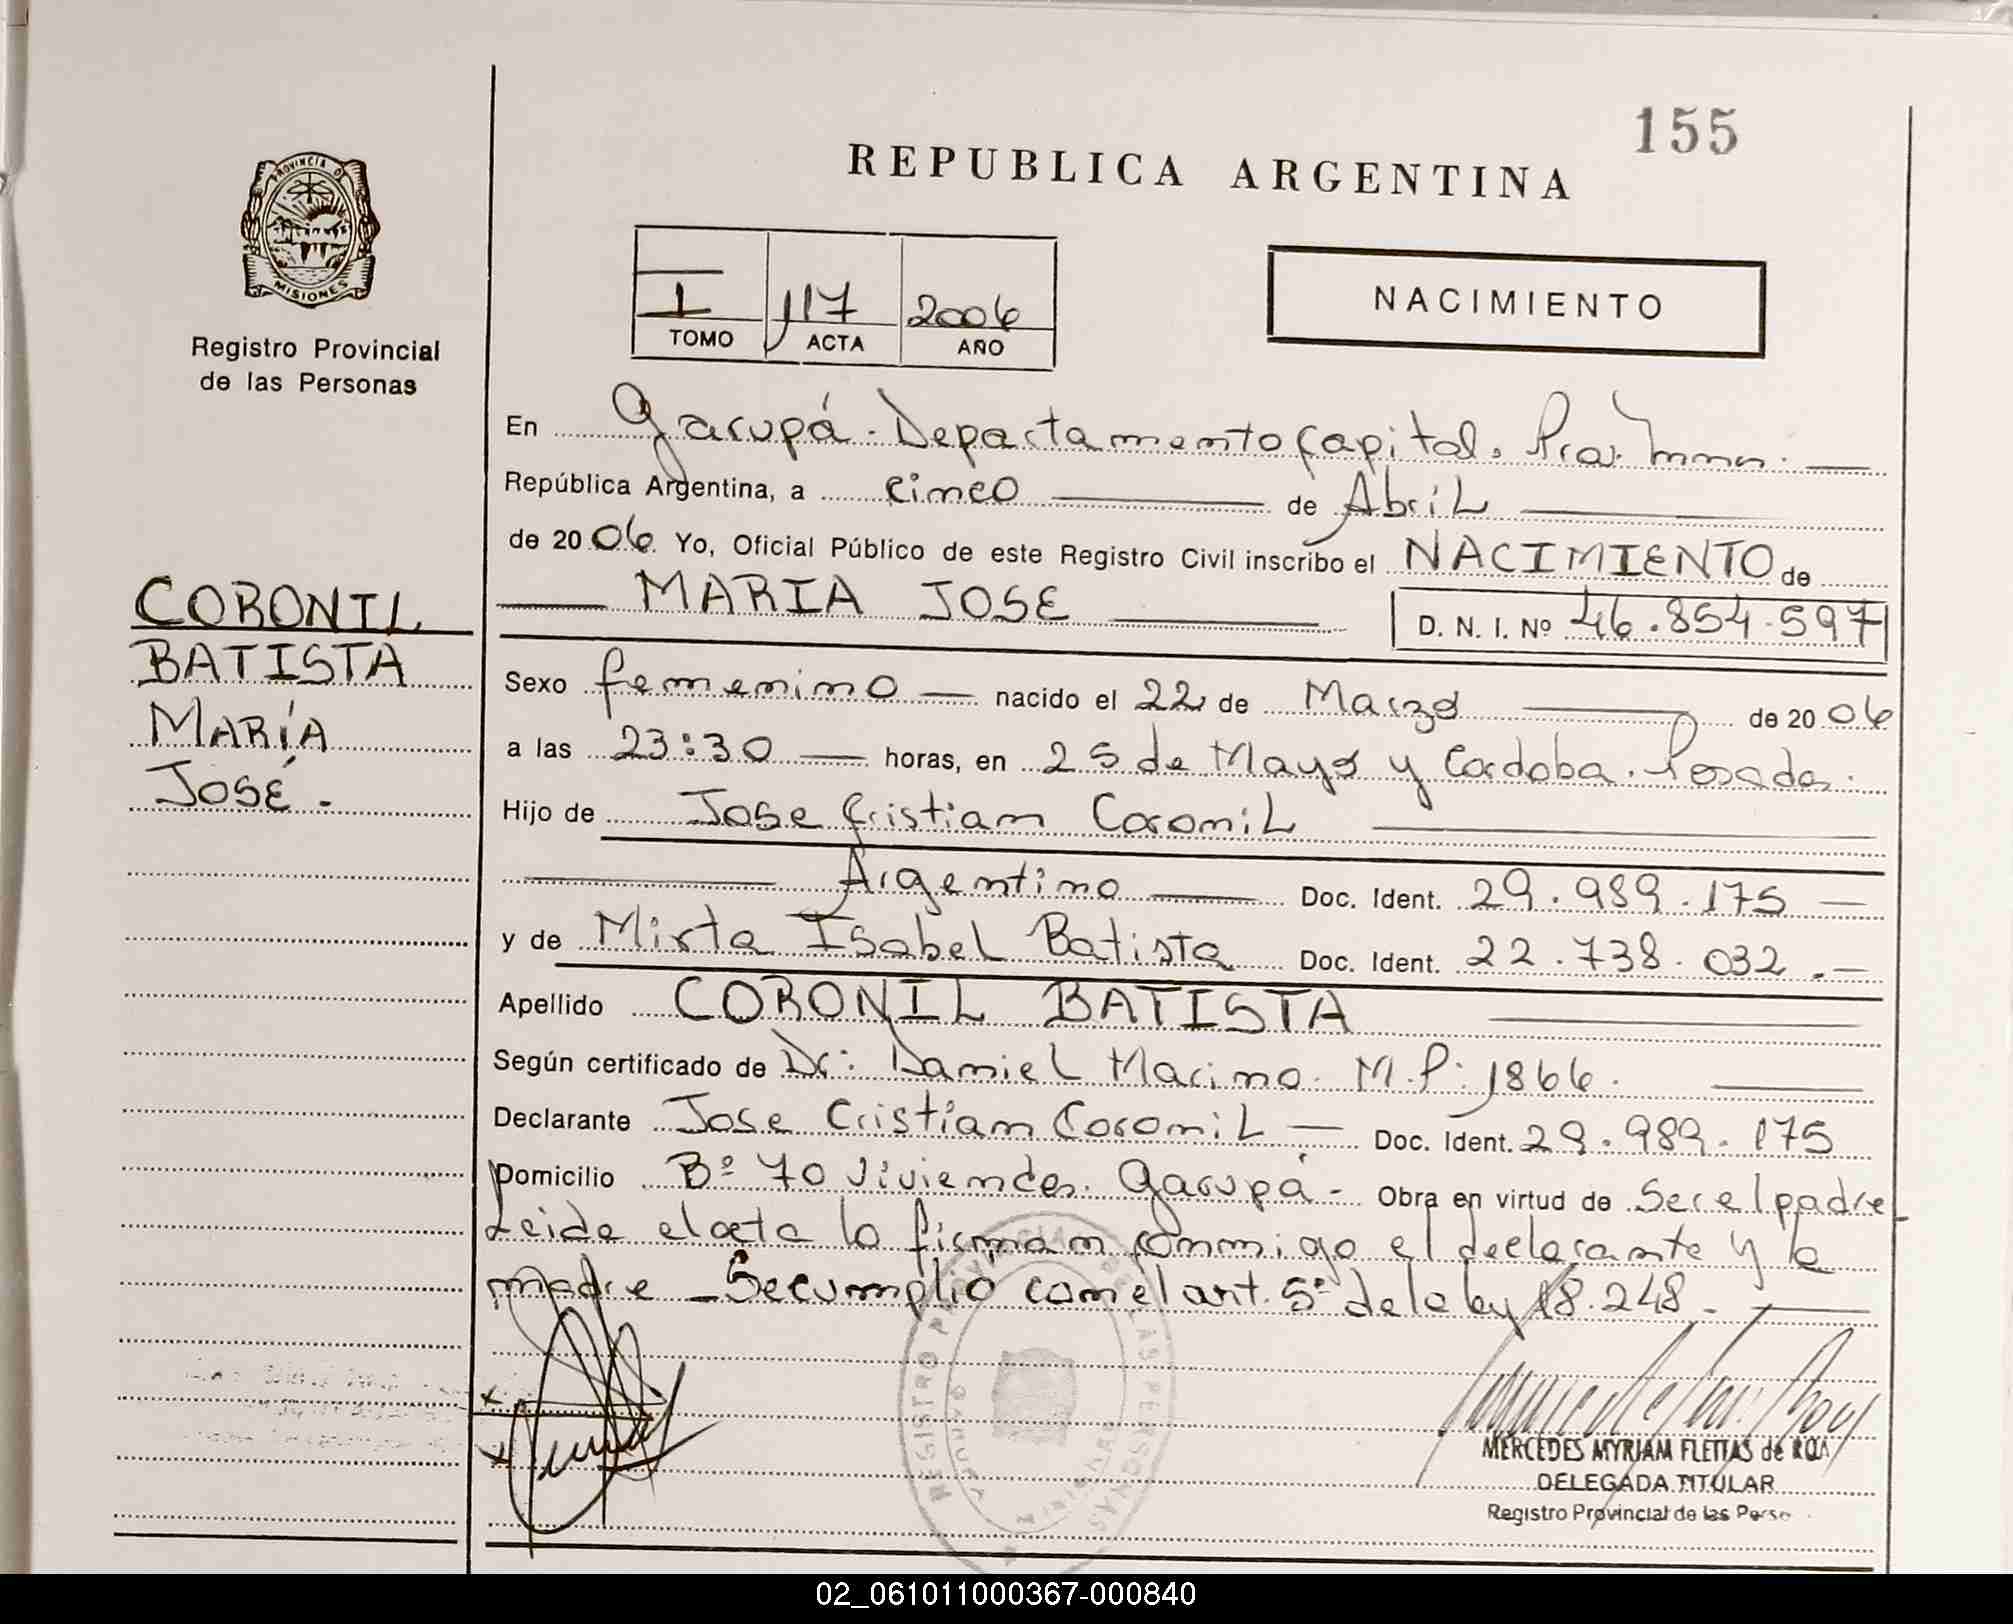 155
REPUBLICA ARGENTINA
PROVINCIA DE
MISIONES
Registro Provincial
de las Personas
I 117 2006
TOMO ACTA AÑO
NACIMIENTO
CORONIL
BATISTA
MARÍA
JOSÉ.-
En Garupá - Departamento Capital. Pcia. Mnes. —
República Argentina, a cinco — de Abril —
de 2006 Yo, Oficial Público de este Registro Civil inscribo el NACIMIENTO de
— MARIA JOSE — D. N. I. Nº 46.854.597
Sexo femenino — nacido el 22 de Marzo — de 2006
a las 23:30 — horas, en 25 de Mayo y Cordoba. Posadas.
Hijo de Jose Cristian Coronil —
— Argentino — Doc. Ident. 29.989.175 —
y de Mirta Isabel Batista Doc. Ident. 22.738.032.—
Apellido CORONIL BATISTA —
Según certificado de Dr: Daniel Marino. M.P: 1866. —
Declarante Jose Cristian Coronil — Doc. Ident. 29.989.175
Domicilio Bº 70 Viviendas. Garupá - Obra en virtud de Ser el padre
Leida el acta la firman conmigo el declarante y la
madre - Se cumplio con el art. 5º de la ley 18.248. —
REGISTRO PROVINCIAL DE LAS PERSONAS
GARUPA
MERCEDES MYRIAM FLEITAS de ROA
DELEGADA TITULAR
Registro Provincial de las Perso
02_061011000367-000840